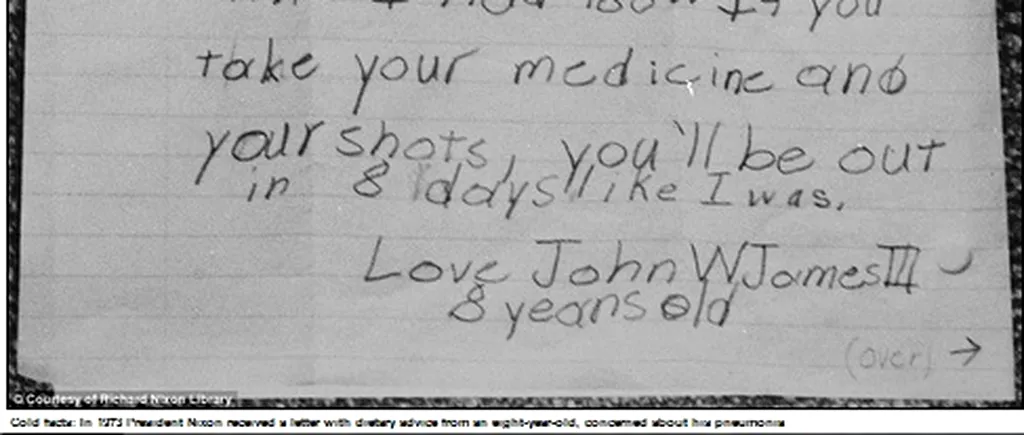 you
take your medicine and
your shots, you'll be out
in 8 days like I was.
Love John W James III
8 years old
(over) →
© Courtesy of Richard Nixon Library
Cold facts: In 1973 President Nixon received a letter with dietary advice from an eight-year-old, concerned about his pneumonia